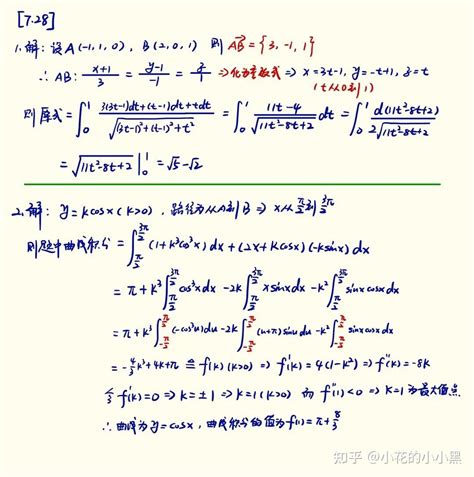 [7.28]
1.解: 设A(-1,1,0), B(2,0,1) 则 AB={3,-1,1}
∴ AB: (x+1)/3 = (y-1)/-1 = z/1 ⇒化为参数式⇒ x=3t-1, y=-t+1, z=t
(t从0到1)
则原式=∫₀¹ (3(3t-1)dt+(t-1)dt+tdt)/√((3t-1)²+(t-1)²+t²) = ∫₀¹ (11t-4)/√(11t²-8t+2) dt = ∫₀¹ d(11t²-8t+2)/(2√(11t²-8t+2))
= √(11t²-8t+2) |₀¹ = √5-√2
2.解: y=kcosx(k>0), 路径为从A到B ⇒ x从π/2到3π/2
则题中曲线积分 = ∫_{π/2}^{3π/2} (1+k³cos³x)dx+(2x+kcosx)(-ksinx)dx
= π+k³∫_{π/2}^{3π/2} cos³xdx -2k∫_{π/2}^{3π/2} xsinxdx -k²∫_{π/2}^{3π/2} sinxcosxdx
= π+k³∫_{-π/2}^{π/2} (-cos³u)du -2k∫_{-π/2}^{π/2} (u+π)sinudu -k²∫_{-π/2}^{π/2} sinxcosxdx
= -4/3k³+4k+π ≜ f(k)(k>0) ⇒ f'(k)=4(1-k²) ⇒ f''(k)=-8k
令f'(k)=0 ⇒ k=±1 ⇒ k=1(k>0) 而f''(1)<0 ⇒ k=1为最大值点
∴ 曲线为y=cosx, 曲线积分的值为f(1)=π+8/3
知乎 @小花的小小黑